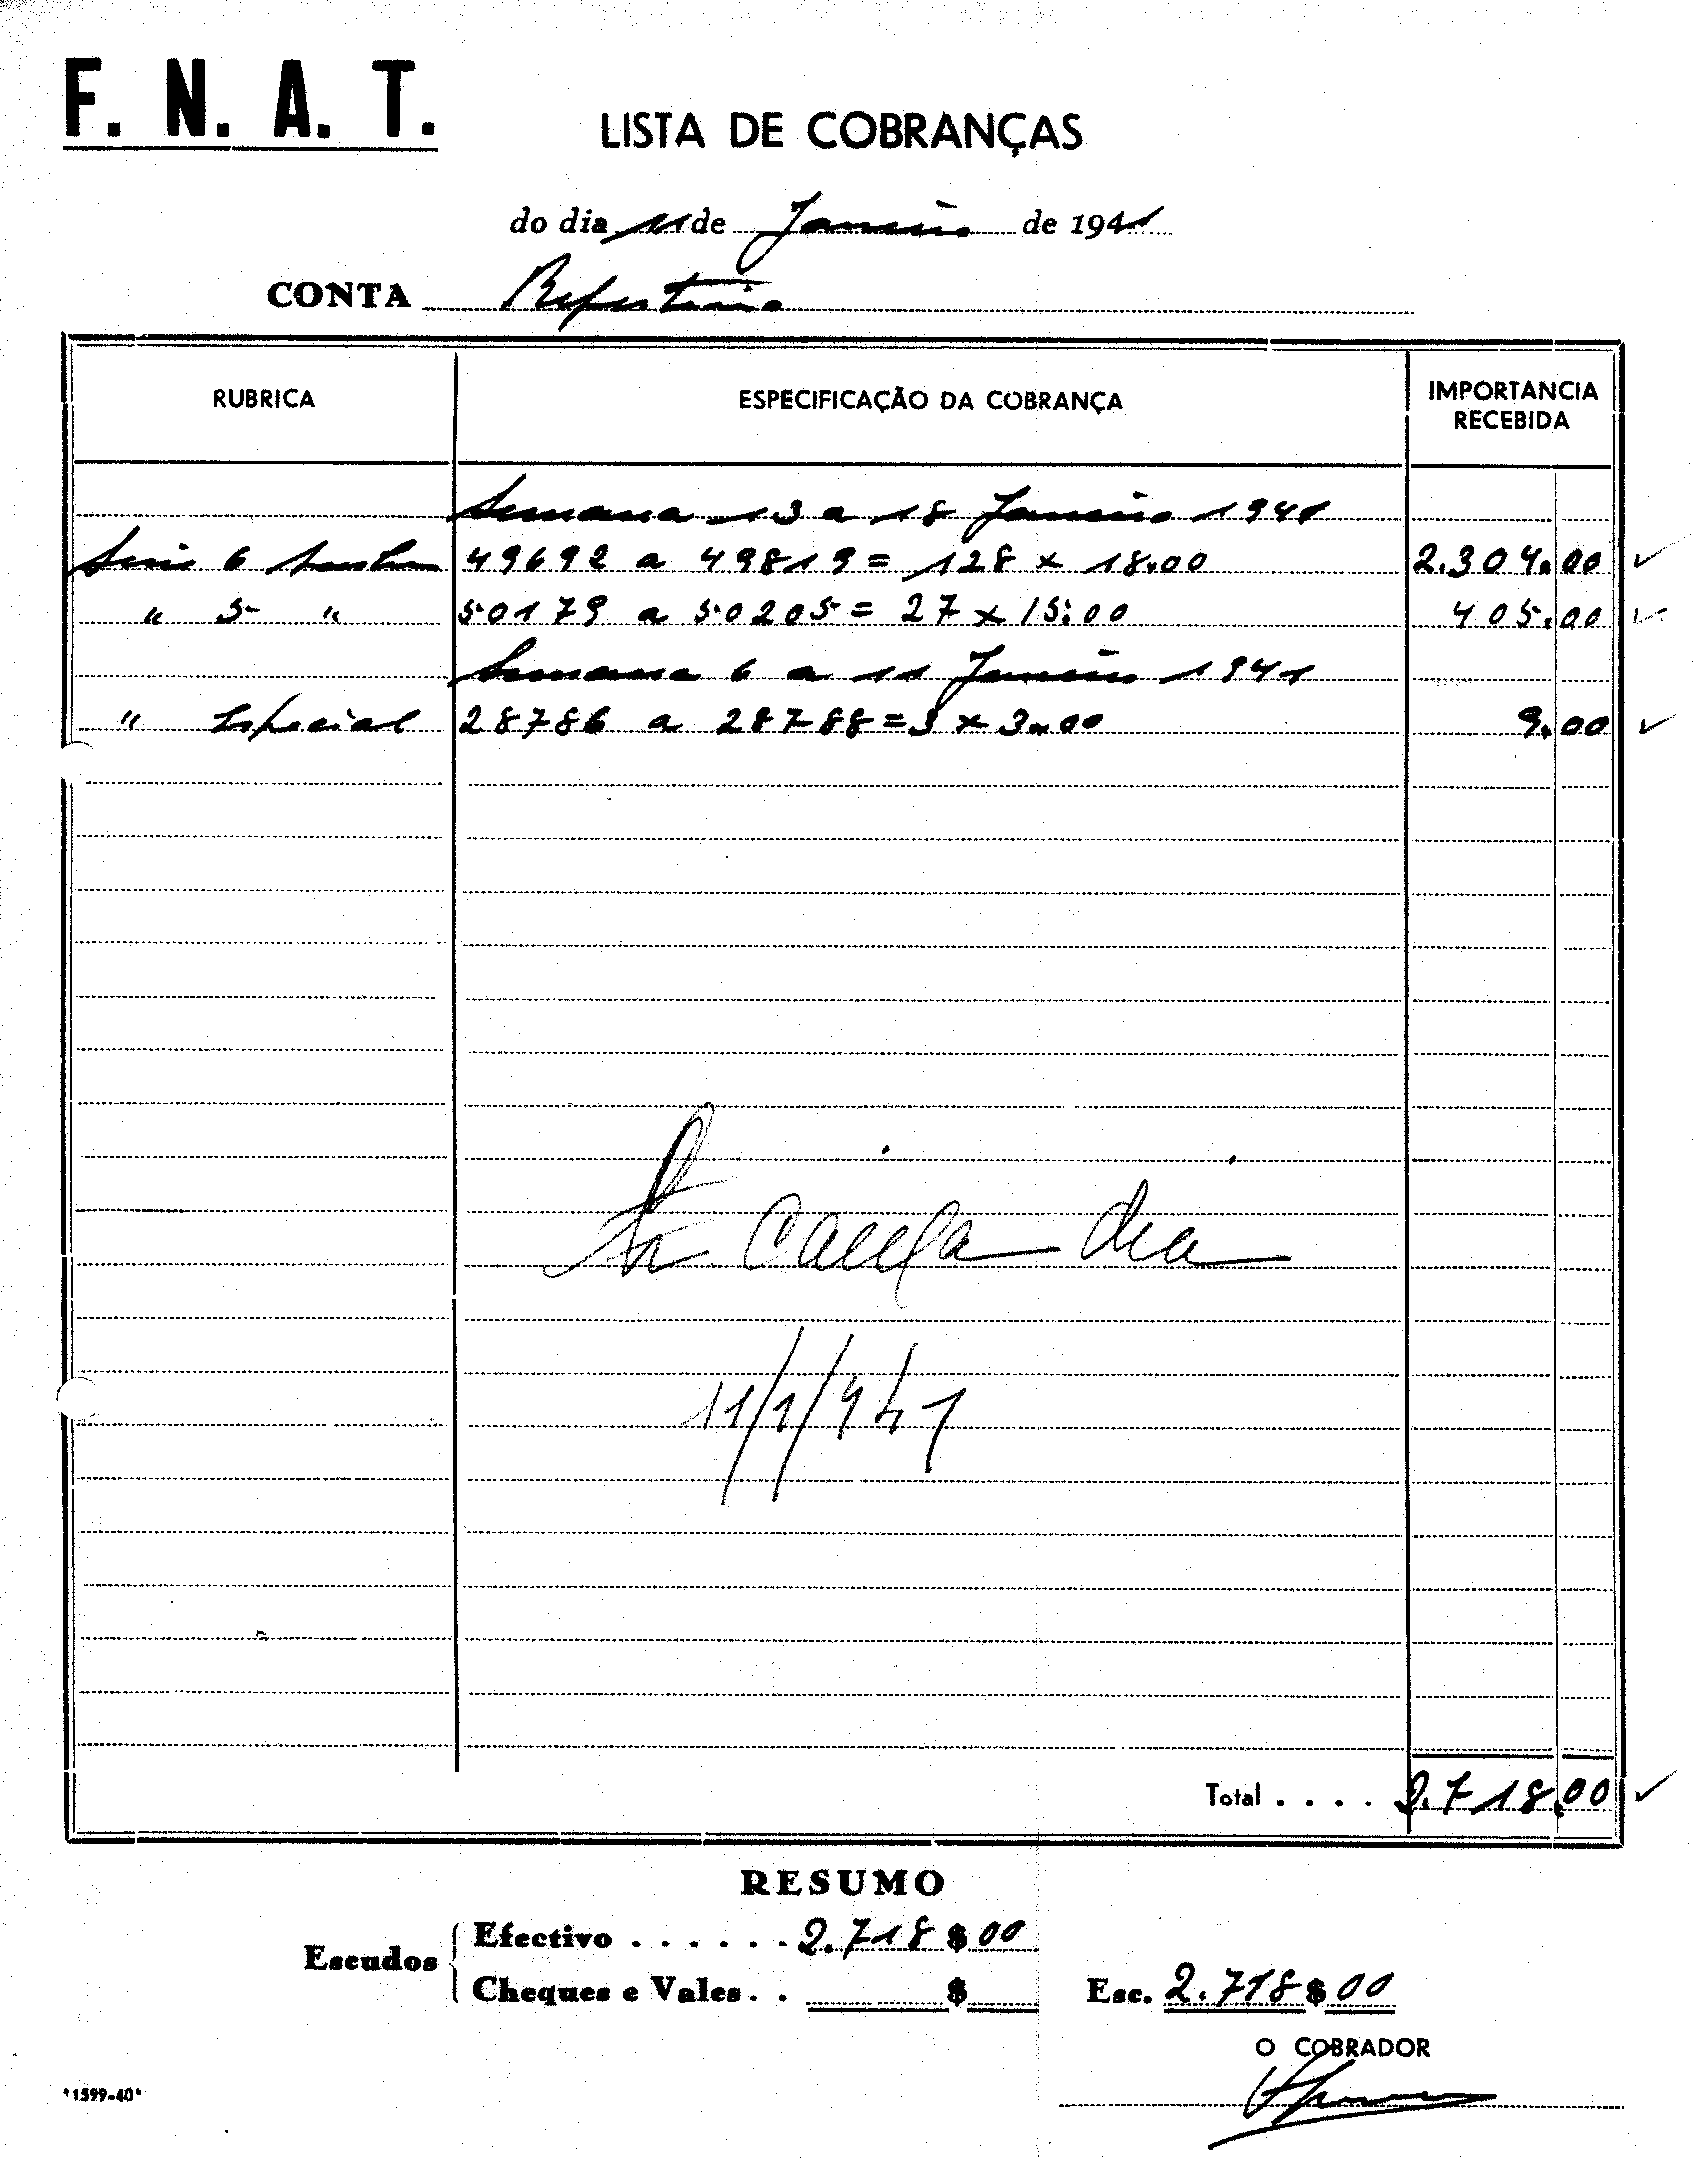 F. N. A. T.
LISTA DE COBRANÇAS
do dia 11 de Janeiro de 1941
CONTA Refeitório
RUBRICA ESPECIFICAÇÃO DA COBRANÇA IMPORTANCIA RECEBIDA
Semana 13 a 18 Janeiro 1941
Serie 6 Senhas 49692 a 49819 = 128 x 18.00 2.304.00
" 5 " 50179 a 50205 = 27 x 15.00 405.00
Semana 6 a 11 Janeiro 1941
" Especial 28786 a 28788 = 3 x 3.00 9.00
Caixa dia
11/1/941
Total . . . . 2.718.00
RESUMO
Escudos
Efectivo . . . . . . 2.718$00
Cheques e Vales . . $
Esc. 2.718$00
O COBRADOR
"1599-40"